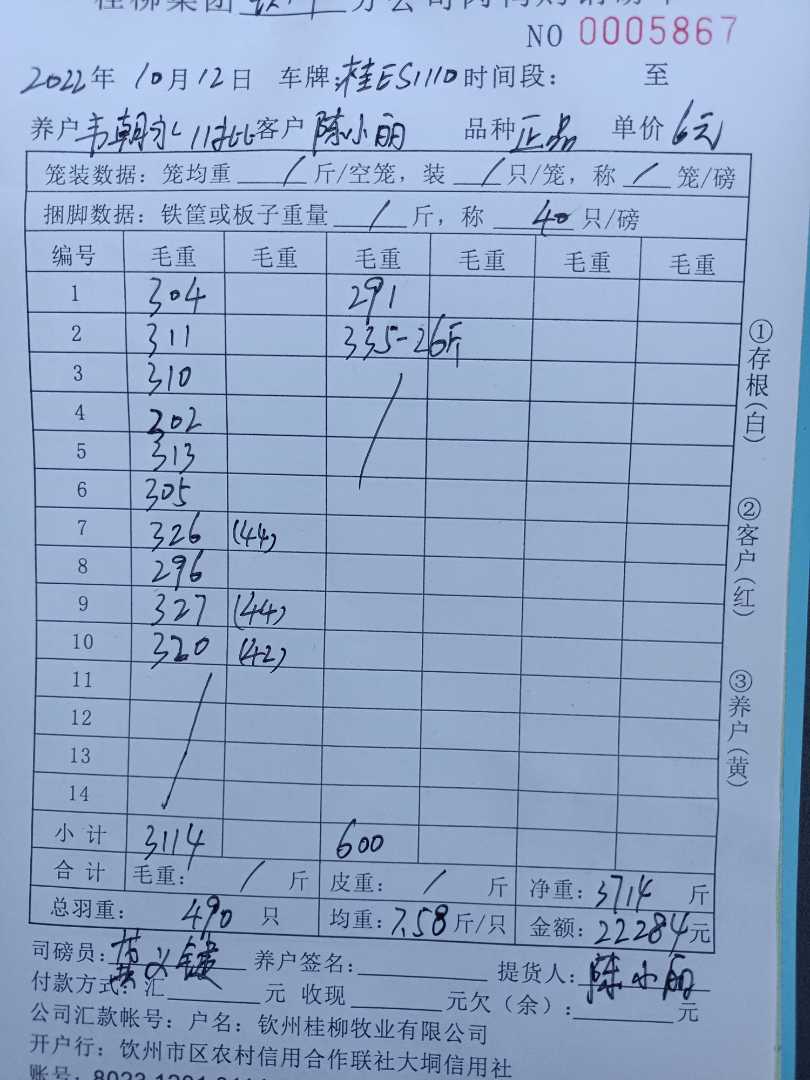 桂柳集团 分公司
NO 0005867
2022年 10月12日 车牌:桂ES1110时间段: 至
养户韦朝 11 客户 陈小丽 品种 正品 单价 6元
笼装数据: 笼均重 / 斤/空笼, 装 / 只/笼, 称 / 笼/磅
捆脚数据: 铁筐或板子重量 / 斤, 称 40 只/磅
编号 毛重 毛重 毛重 毛重 毛重 毛重
1 304 291
2 311 335-26斤
3 310
4 202
5 313
6 305
7 326 (44)
8 296
9 327 (44)
10 320 (42)
11
12
13
14
小计 3114 600
合计 毛重: / 斤 皮重: / 斤 净重: 3714 斤
总羽重: 490 只 均重: 7.58斤/只 金额: 22284元
司磅员: 黄 养户签名: 提货人: 陈小丽
付款方式: 汇 元 收现 元欠(余): 元
公司汇款帐号: 户名: 钦州桂柳牧业有限公司
开户行: 饮州市区农村信用合作联社大垌信用社
账号: 8023
①存根(白)
②客户(红)
③养户(黄)